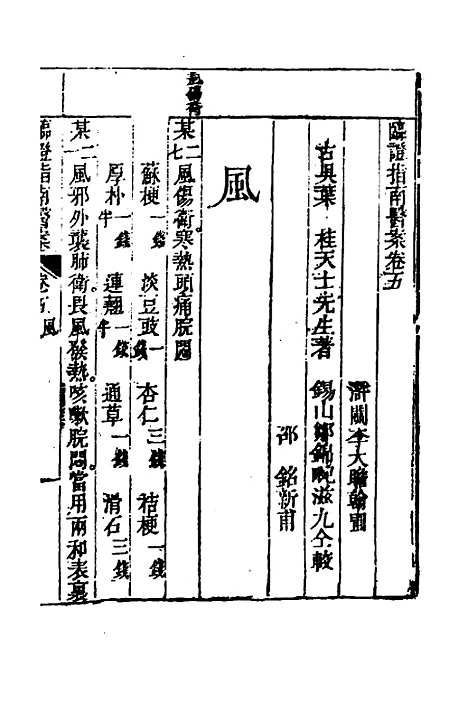 臨證指南醫案卷五
滸關李大瞻翰圃
古吳葉　桂天士先生著　錫山鄒錦畹滋九仝較
邵　銘新甫
風
風傷衛
某二七風傷衛寒熱頭痛脘悶
蘇梗一錢　淡豆豉一錢半　杏仁三錢　桔梗一錢
厚朴一錢半　連翹一錢半　通草一錢　滑石三錢
某二一風邪外襲肺衛畏風發熱咳嗽脘悶當用兩和表裏
臨證指南醫案　卷五　風